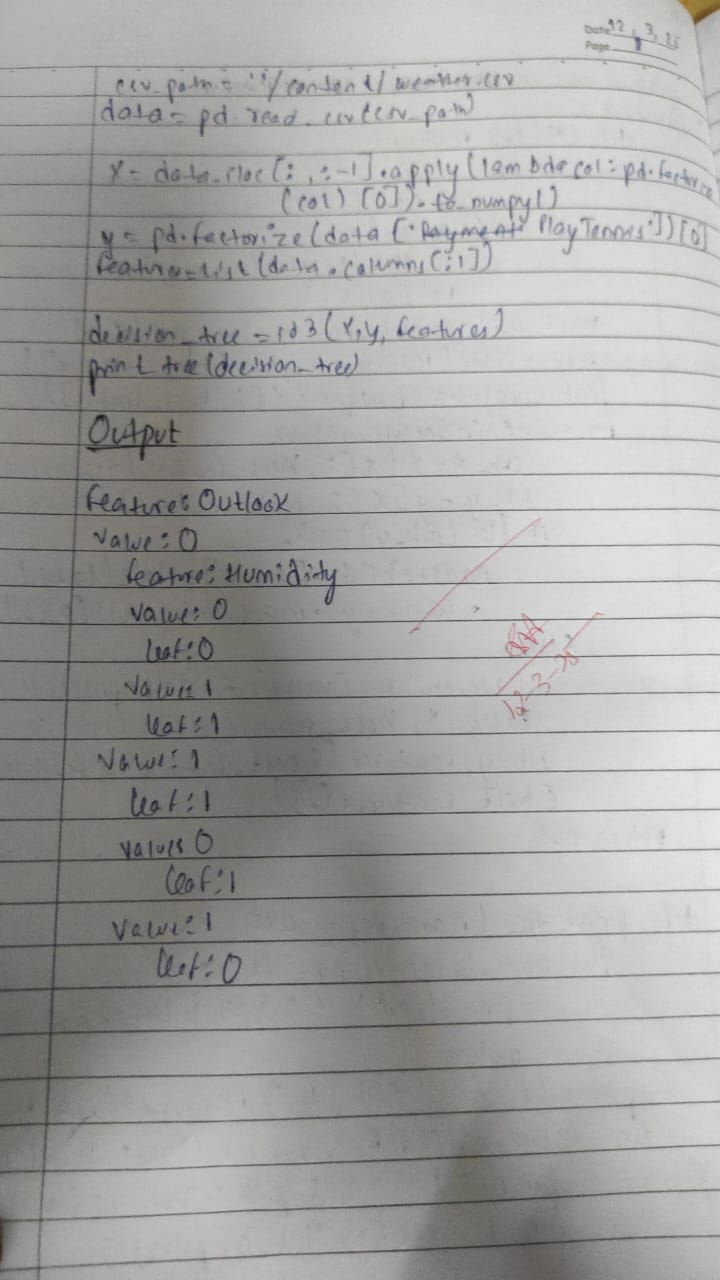 Date 12, 3, 25
Page 8
csv_path = "/content/weather.csv
data = pd.read_csv(csv_path)
X = data.iloc[:,:-1].apply(lambda col: pd.factorize
(col)[0]).to_numpy()
y = pd.factorize(data['Payment' PlayTennis'])[0]
features=list(data.columns[:1])
decision_tree = id3(X,y,features)
print tree(decision_tree)
Output
Feature: Outlook
Value: 0
feature: Humidity
Value: 0
leaf: 0
Value: 1
leaf: 1
Value: 1
leaf: 1
Value: 0
leaf: 1
Value: 1
leaf: 0
12-3-25